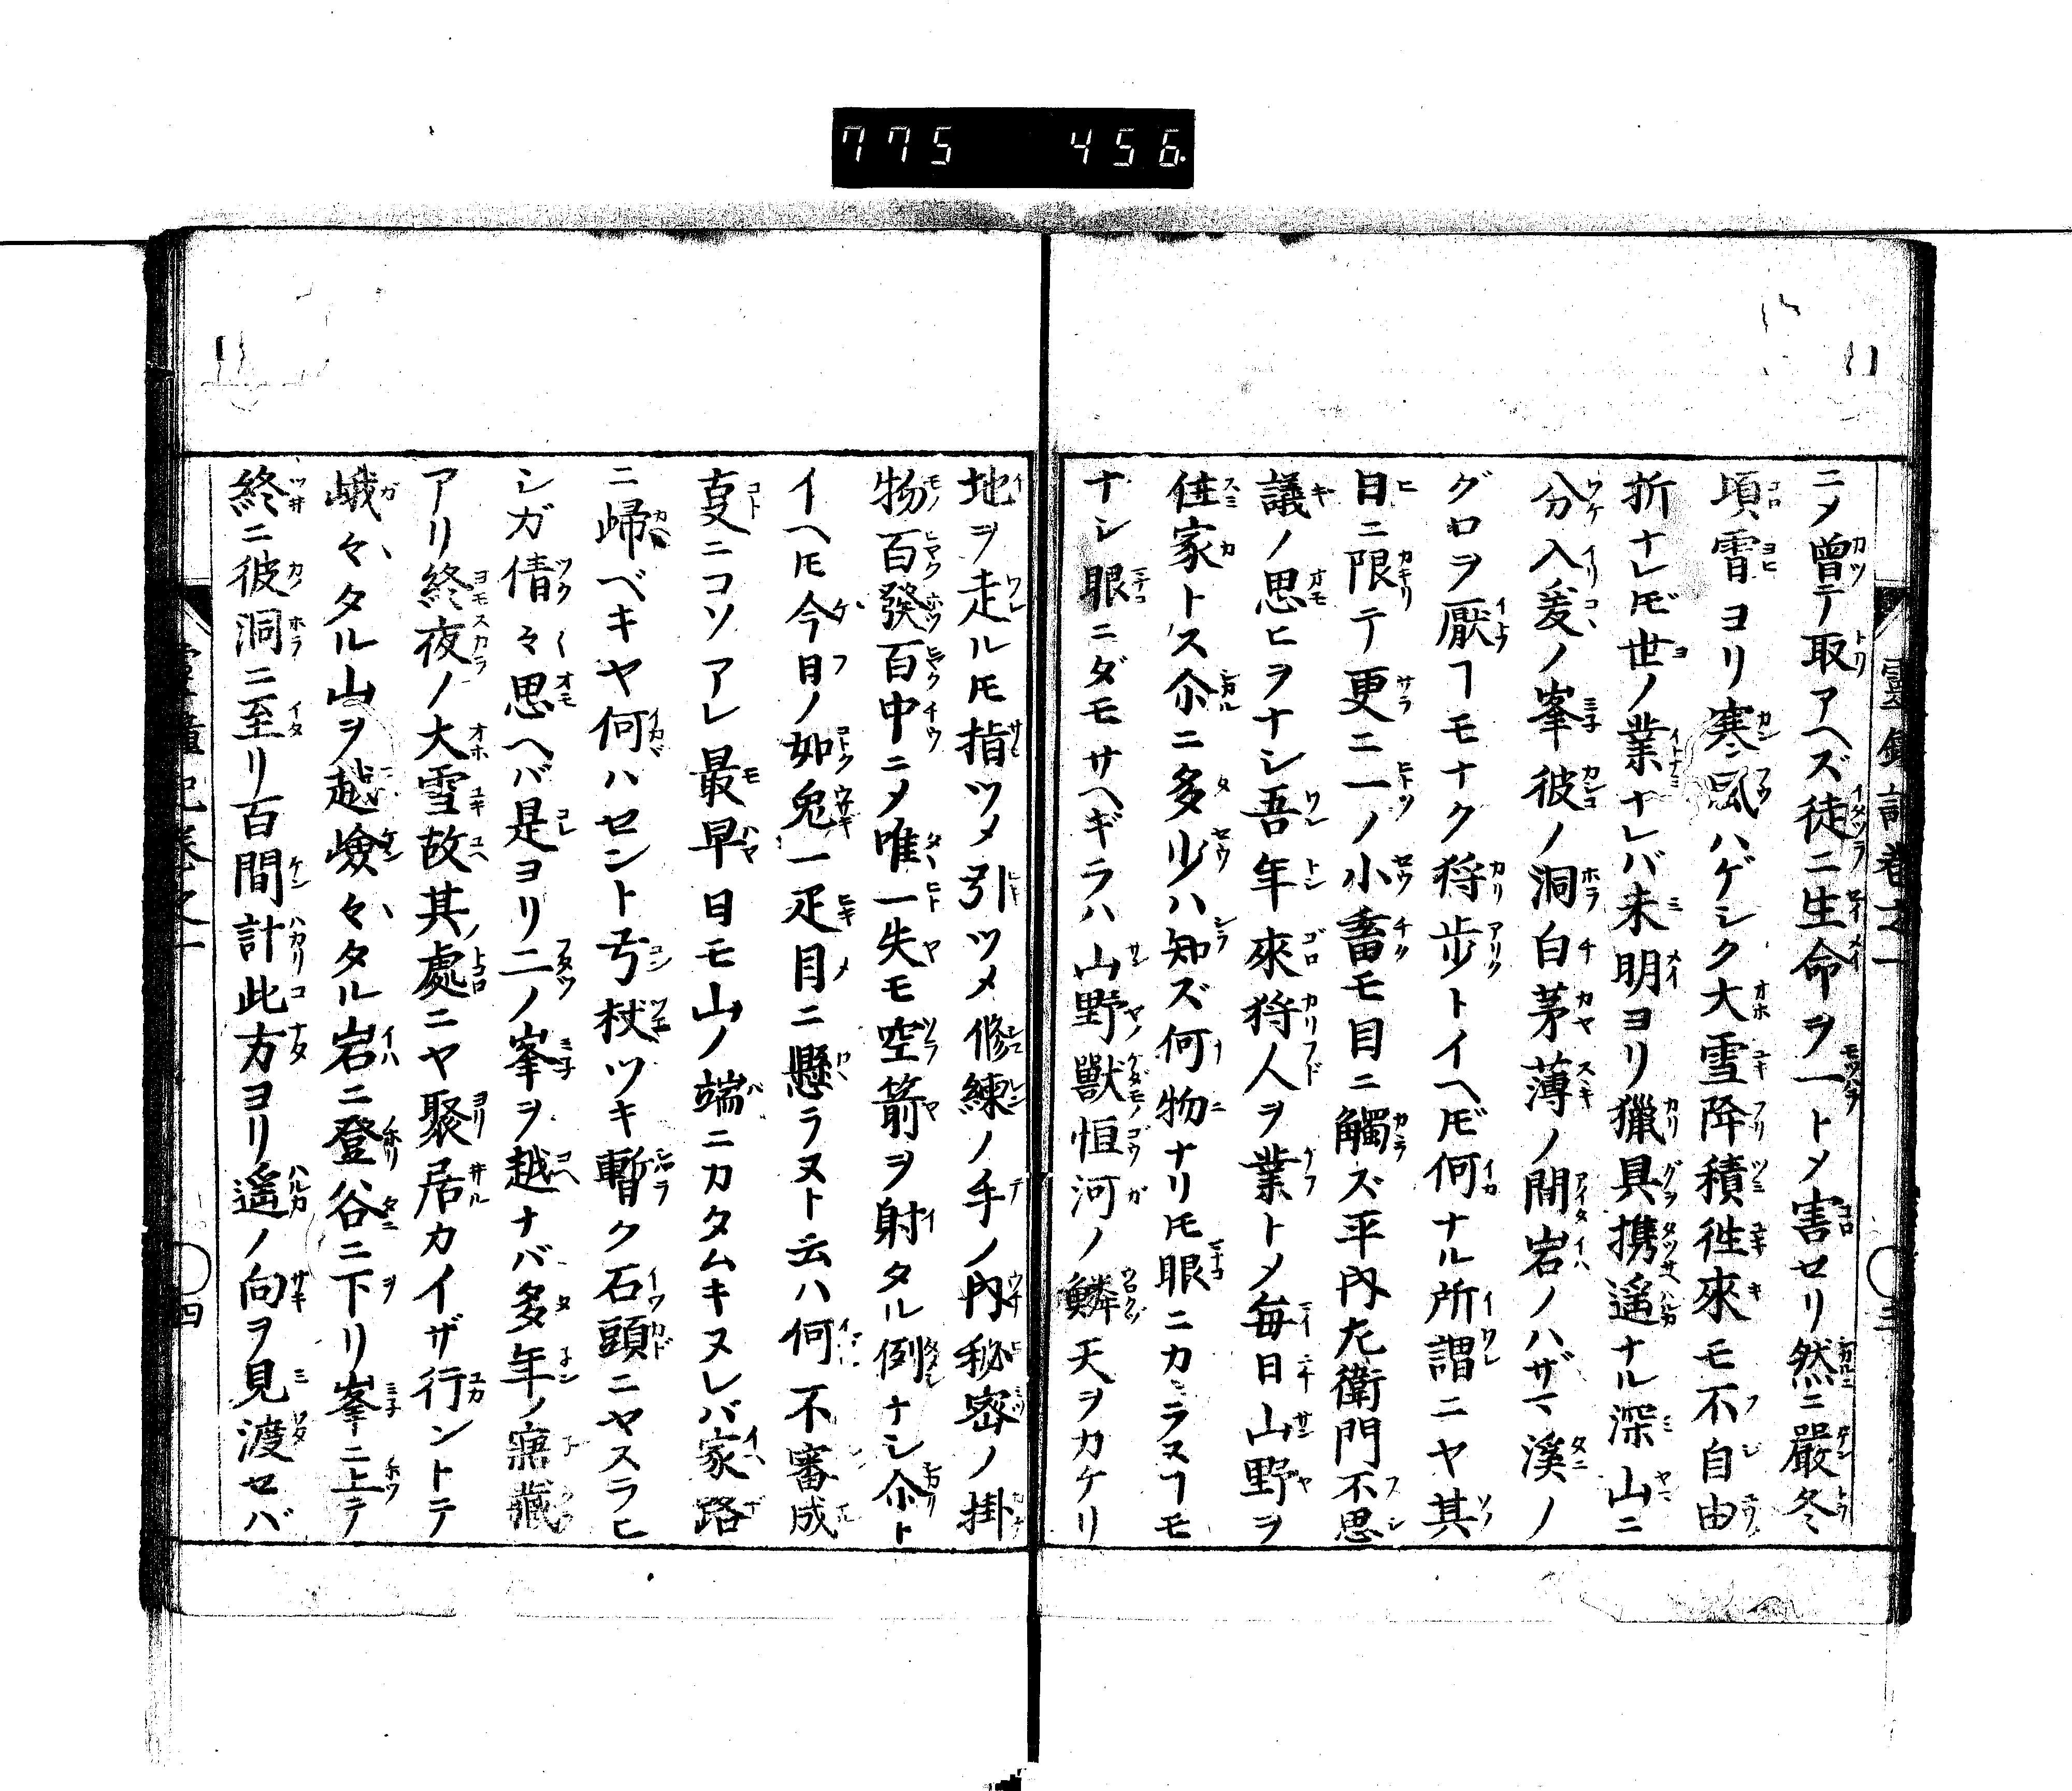 775 456
靈鐘記卷之一 三
ニメ曾テ取アヘズ徒ニ生命ヲ一トメ害セリ然ニ嚴冬
頃雪ヨリ寒風ハゲシク大雪降積徃來モ不自由
折ナレ𪜈世ノ業ナレバ未明ヨリ獵具携遥ナル深山ニ
分入爰ノ峯彼ノ洞白茅薄ノ間岩ノハザマ溪ノ
グロヲ厭ヿモナク狩步トイヘ𪜈何ナル所謂ニヤ其
日ニ限テ更ニ一ノ小畜モ目ニ觸ズ平內尤衛門不思
議ノ思ヒヲナシ吾年來狩人ヲ業トメ毎日山野ヲ
住家トス尒ニ多少ハ知ズ何物ナリ𪜈眼ニカヽラヌヿモ
ナシ眼ニダモサヘギラハ山野獸恒河ノ鱗天ヲカケリ
地ヲ走ル𪜈指ツメ引ツメ修練ノ手ノ內秘密ノ掛
物百發百中ニメ唯一失モ空箭ヲ射タル例ナシ尒ト
イヘ𪜈今日ノ如兔一疋目ニ懸ラヌト云ハ何不審成
叓ニコソアレ最早日モ山ノ端ニカタムキヌレバ家路
ニ歸ベキヤ何ハセント弓杖ツキ暫ク石頭ニヤスラヒ
シガ倩々思ヘバ是ヨリ二ノ峯ヲ越ナバ多年ノ寤藏
アリ終夜ノ大雪故其處ニヤ聚居カイザ行ントテ
峨々タル山ヲ越嶮々タル岩ニ登谷ニ下リ峯ニ上テ
終ニ彼洞ニ至リ百間計此方ヨリ遥ノ向ヲ見渡セバ
四